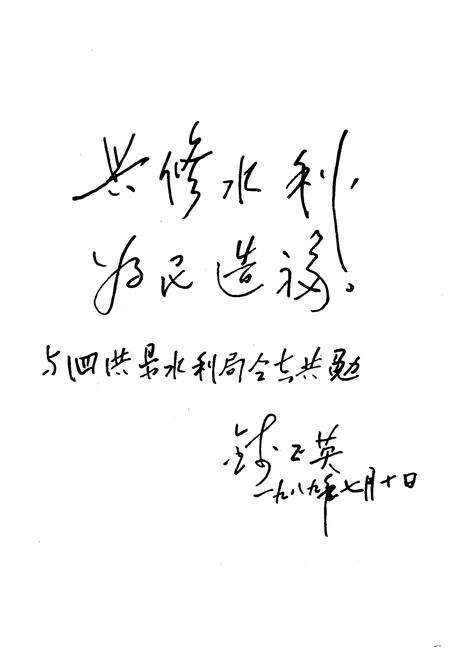 兴修水利,
为民造福。
与泗洪县水利局仝志共勉
钱正英
一九八九年七月十日